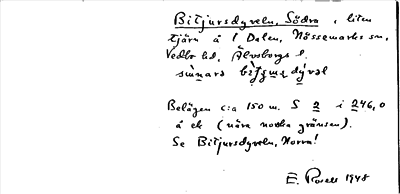 Bitjursdyveln, Södra, liten
tjärn å 1 Dalen, Nössemarks sn,
Vedbo hd, Älvsborgs l.
Belägen c:a 150 m. S 2 i 246,0
å ek (nära norska gränsen).
Se Bitjursdyveln, Norra!
E. Rosell 1948